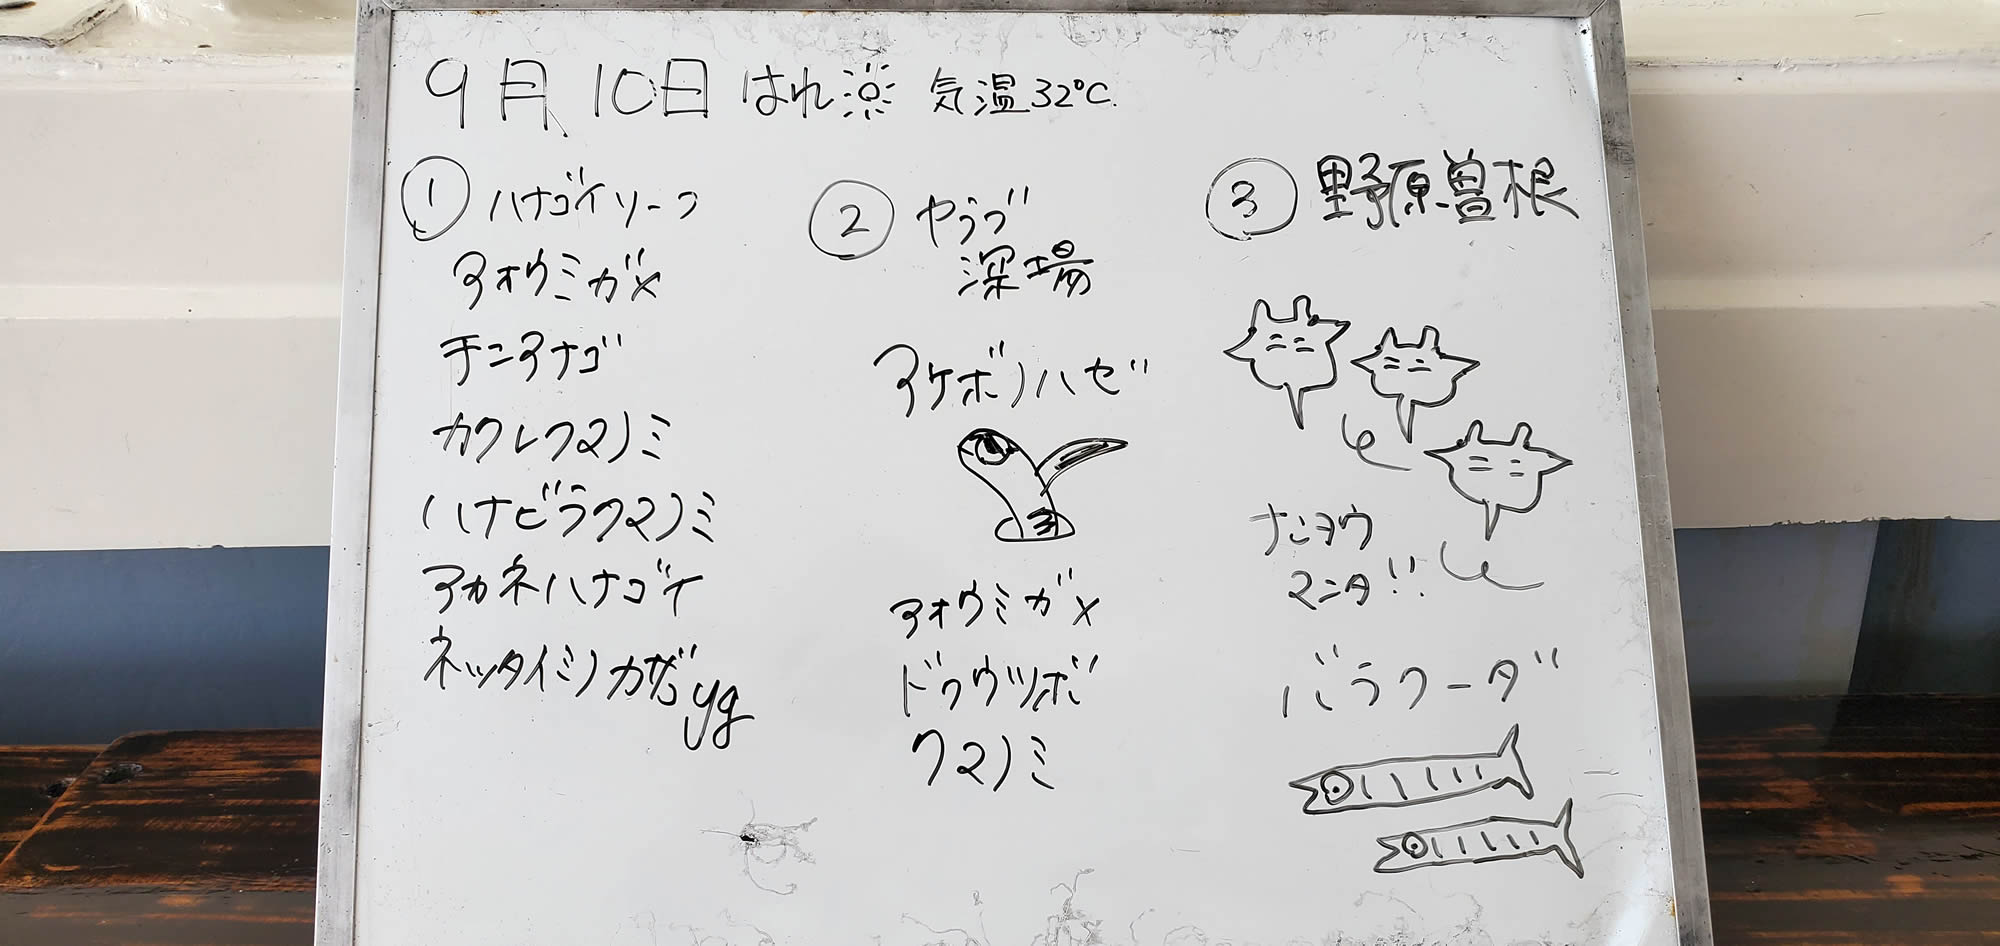 9月10日 はれ 気温32℃.
① ハナゴイリーフ
アオウミガメ
チンアナゴ
カクレクマノミ
ハナビラクマノミ
アカネハナゴイ
ネッタイミノカサゴyg
② ヤラブ
深場
アケボノハゼ
アオウミガメ
ドクウツボ
クマノミ
③ 野原曽根
ナンヨウ
マンタ!!
バラクーダ